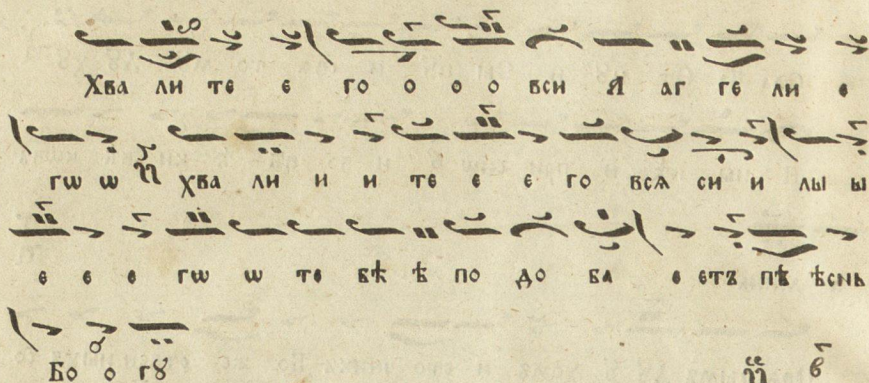 Хва ли те е го о о о вси Я аг ге ли е
гѡ ѡ хва ли и и те е е го всѧ си и лы ы
е е е гѡ ѡ те бѣ ѣ по до ба е етъ пѣ ѣснь
Бо о гꙋ